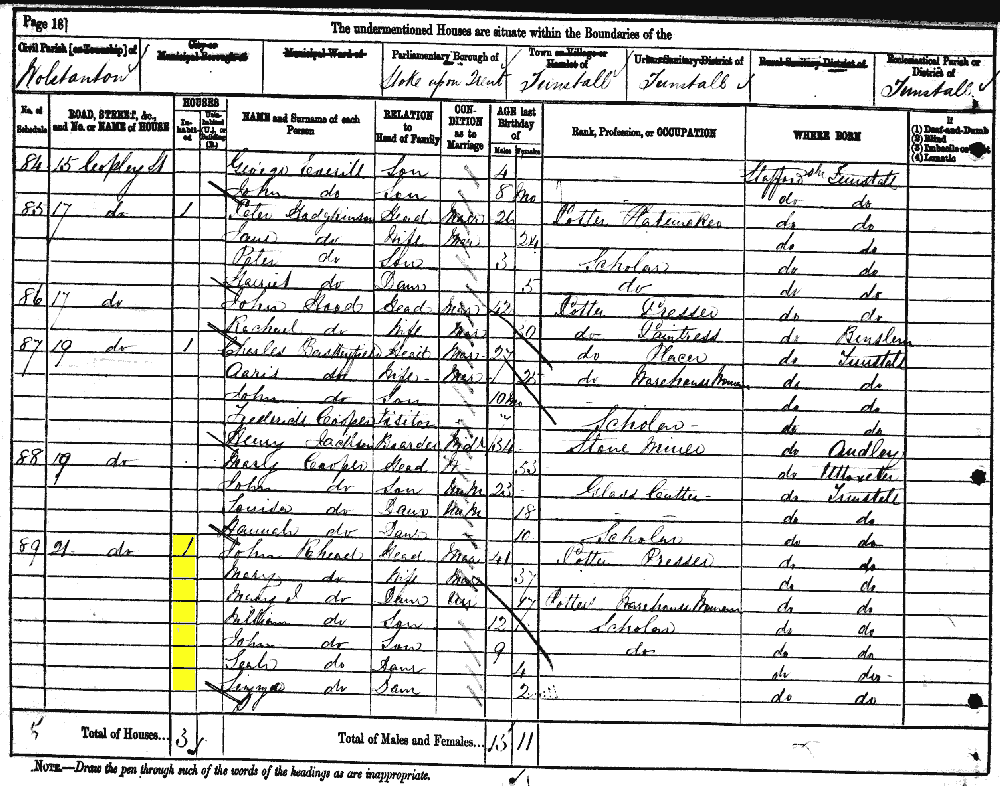 Page 18]
The undermentioned Houses are situate within the Boundaries of the
Civil Parish [or Township] of
City or Municipal Borough of
Municipal Ward of
Parliamentary Borough of
Town or Village or Hamlet of
Urban Sanitary District of
Rural Sanitary District of
Ecclesiastical Parish or District of
Wolstanton Stoke upon Trent Tunstall Tunstall Tunstall
No. of Schedule
ROAD, STREET, &c., and No. or NAME of HOUSE
HOUSES
Inhabited
Uninhabited (U.), or Building (B.)
NAME and Surname of each Person
RELATION to Head of Family
CONDITION as to Marriage
AGE last Birthday of
Males Females
Rank, Profession, or OCCUPATION
WHERE BORN
If
(1) Deaf-and-Dumb
(2) Blind
(3) Imbecile or Idiot
(4) Lunatic
84 15 Copley St George Son 4 Stafford sh Tunstall
John do Son 8 Mo do do
85 17 do 1 Peter Hodgkinson Head Mar 26 Potter Platemaker do do
Jane do Wife Mar 24 do do
Peter do Son 3 Scholar do do
Harriet do Daur 5 do do do
86 17 do John Hood Head Mar 42 Potter Presser do do
Rachael do Wife Mar 30 do Paintress do Burslem
87 19 do 1 Charles Head Mar 27 do Placer do Tunstall
do Wife Mar 25 do Warehouse Woman do do
John do Son 10 Mo do do
Frederick Cooper Visitor Scholar do do
Henry Jackson Boarder Stone Miner do Audley
88 19 do Mary Cooper Head W 53 do Uttoxeter
John do Son Unm 23 Glass Cutter do Tunstall
Louisa do Daur Unm 18 do do
Hannah do Daur 10 Scholar do do
89 21 do 1 John Head Mar 41 Potter Presser do do
Mary do Wife Mar 37 do do
Mary J do Daur Un 17 Potter Warehouse Woman do do
William do Son 12 Scholar do do
John do Son 9 do do do
Leah do Daur 4 do do
do Daur 2 do do
5 Total of Houses... 3 Total of Males and Females... 13 11
NOTE.—Draw the pen through such of the words of the headings as are inappropriate.